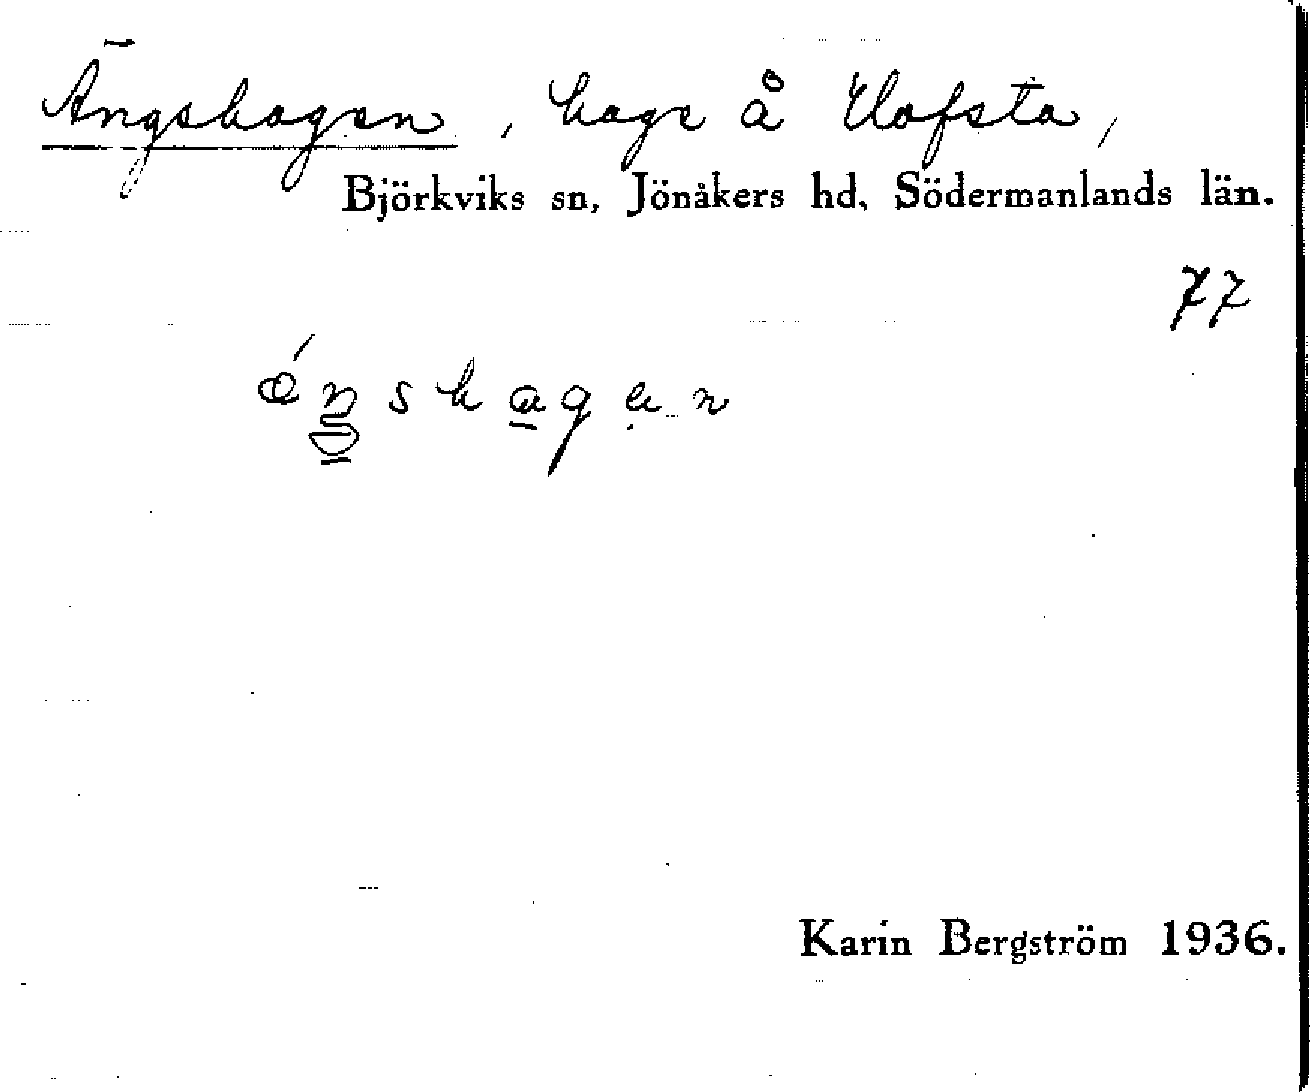 Ängshagen, hage å Elofsta,
Björkviks sn, Jönåkers hd, Södermanlands län.
77
Karin Bergström 1936.